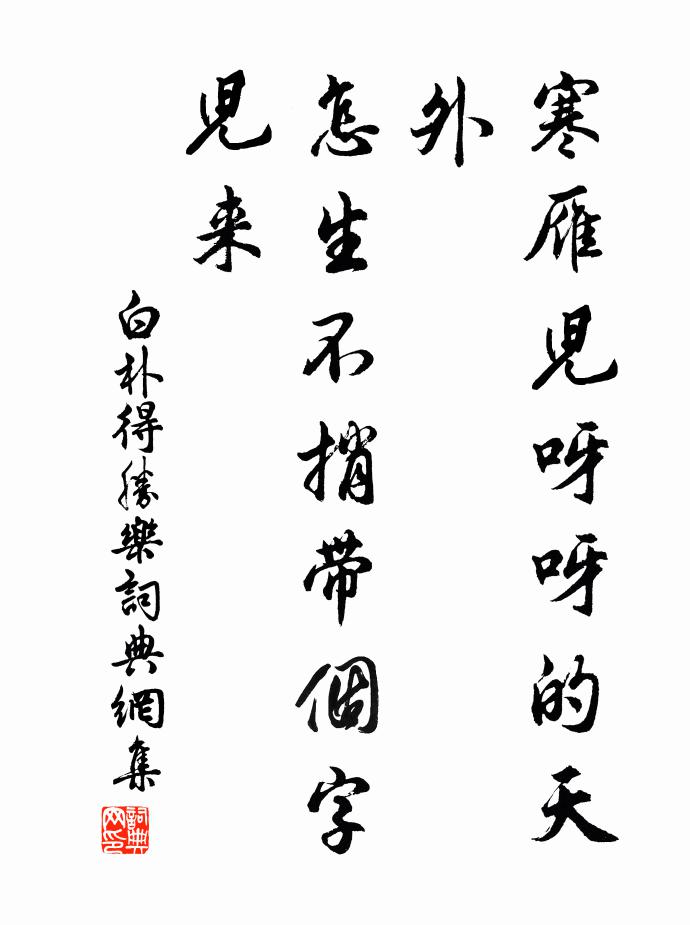 寒雁児呀呀的天
外
怎生不捎帶個字
児来
白朴得勝樂詞典網集
詞典
网印